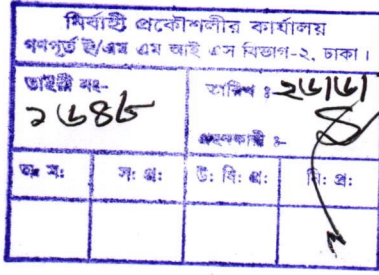 নির্বাহী প্রকৌশলীর কার্যালয়
গণপূর্ত ই/এম এম আই এস বিভাগ-২, ঢাকা।
ডাইরী নং- তারিখ : ২৬/৬/
১৬৪৮
গ্রহনকারী :-
স: প্র: উ: বি: প্র: নি: প্র: